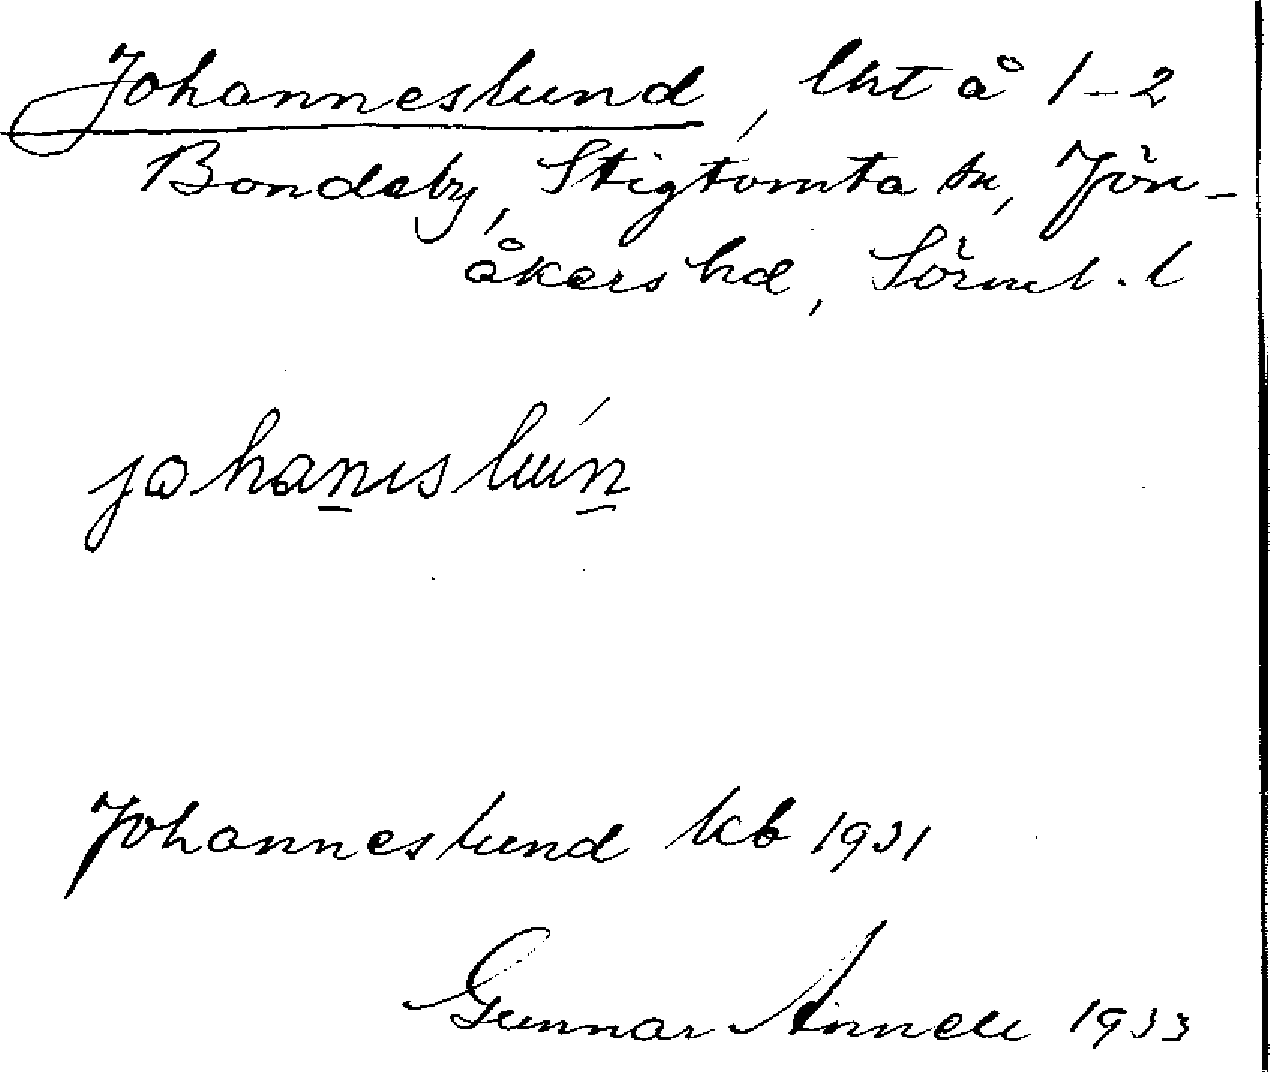 Johanneslund, lht å 1-2
Bondeby, Stigtomta sn, Jön-
åkers hd, Sörml. l
johanıslún
Johanneslund kb 1931
Gunnar Annell 1933